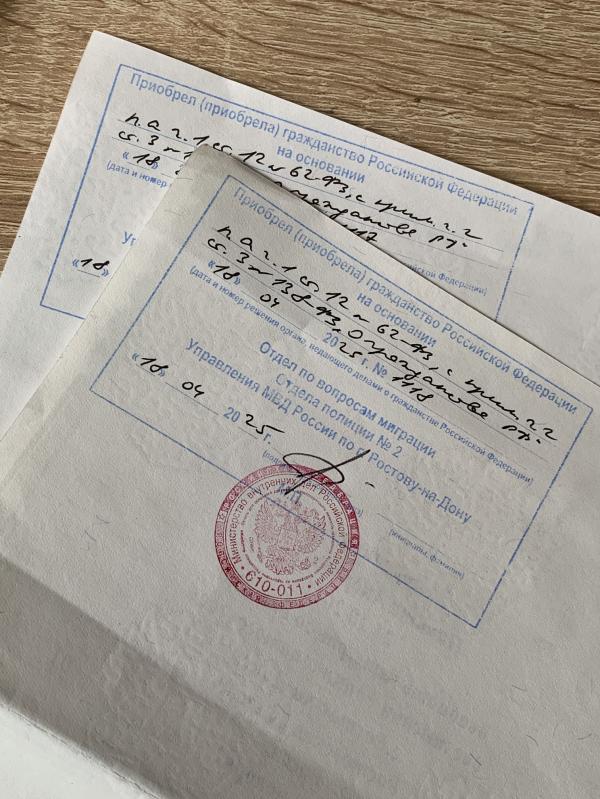 Приобрел (приобрела) гражданство Российской Федерации
на основании
п. а ч. 1 ст. 12 № 62-ФЗ, с прим. ч. 2
ст. 3 № 1
гражданстве РФ.
«18
(дата и номер
ссийской Федерации)
«18»
Приобрел (приобрела) гражданство Российской Федерации
на основании
п. а ч. 1 ст. 12 № 62-ФЗ, с прим. ч. 2
ст. 3 № 138-ФЗ, О гражданстве РФ.
«18» 04 2025 г. № 1118
(дата и номер решения органа, ведающего делами о гражданстве Российской Федерации)
Отдел по вопросам миграции
Отдела полиции № 2
Управления МВД России по г. Ростову-на-Дону
«18» 04 2025 г.
(инициалы, фамилия)
М.П.
Министерство внутренних дел Российской Федерации
610-011